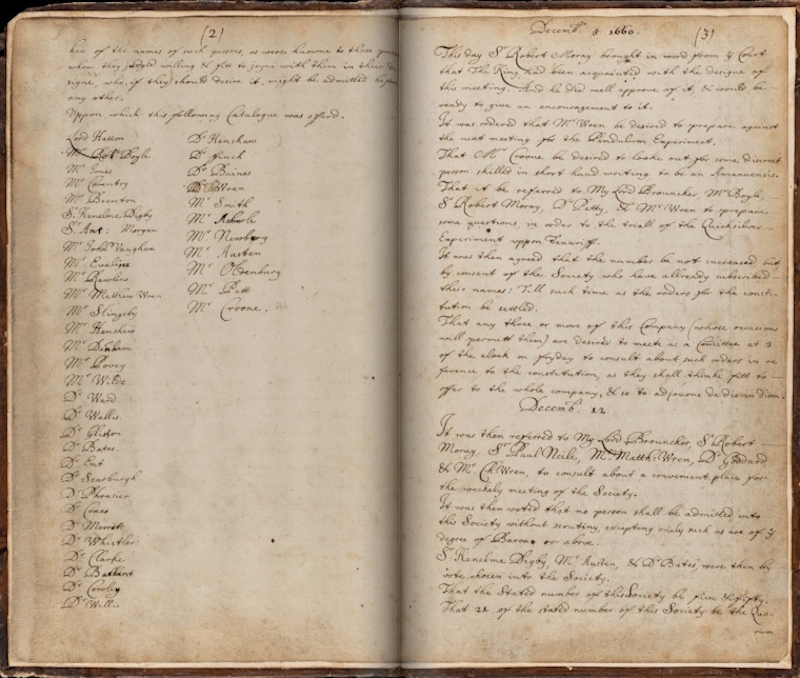 (2)
ken of the names of such persons, as were knowne to those
whom they judged willing & fitt to joyne with them in theire de
signe, who, if they should desire it, might be admitted before
any other.
Uppon which this following Catalogue was offered.
Lord Hatton
Mr Robt Boyle
Mr Jones
Mr Coventry
Mr Brereton
Sr Kenelme Digby
Sr Ant: Morgan
Mr John Vaughan
Mr Evelyn
Mr Rawlins
Mr Matthew Wren
Mr Slingsby
Mr Henshaw
Mr Denham
Mr Povey
Mr Wilde
Dr Ward
Dr Wallis
Dr Glisson
Dr Bates
Dr Ent
Dr Scarburgh
Dr Phraiser
Dr Coxes
Dr Merrett
Dr Whistler
Dr Clarke
Dr Bathurst
Dr Cowley
Dr Willis
Dr Henshaw
Dr Finch
Dr Baines
Dr Wren
Mr Smith
Mr Ashmole
Mr Newburg
Mr Austen
Mr Oldenburg
Mr Pett
Mr Croone.
Decemb. 5 1660.
(3)
This day Sr Robert Moray brought in word from ye Court
that The King had been acquainted with the designe of
this meeting. And he did well approve of it, & would be
ready to give an encouragement to it.
It was ordered that Mr Wren be desired to prepare against
the next meeting for the Pendulum Experiment.
That Mr Croone be desired to looke out for some discreet
person skilled in short hand writing to be an Amanuensis.
That it be referred to My Lord Brouncker, Mr Boyle,
Sr Robert Moray, Dr Petty, & Mr Wren to prepare
some questions, in order to the tryall of the Quicksilver
Experiment uppon Tenariff.
It was then agreed that the number be not increased but
by consent of the Society who have allready subscribed
theire names: Till such time as the orders for the consti-
tution be settled.
That any three or more of this Company (whose occasions
will permitt them) are desired to meete as a Comittee at 3
of the clock on fryday to consult about such orders in re
ference to the constitution, as they shall thinke fitt to
offer to the whole company, & so to adjourne de die in diem.
Decemb. 12.
It was then referred to My Lord Brouncker, Sr Robert
Moray, Sr Paul Neile, Mr Matth: Wren, Dr Goddard
& Mr Ch: Wren, to consult about a convenient place for
the weekely meeting of the Society.
It was then voted that no person shall be admitted into
this Society without scrutiny, excepting onely such as are of ye
degree of Barons or above.
Sr Kenelme Digby, Mr Austen, & Dr Bates, were then by
vote, chosen into the Society.
That the Stated number of this Society be five & fifty.
That 21 of the stated number of this Society be the Quo-
rum